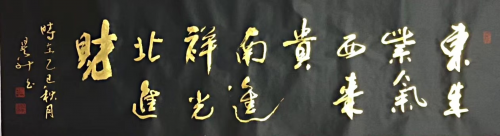 東生
紫氣
西來
貴
南進
祥光
北進
財
時在乙巳秋月